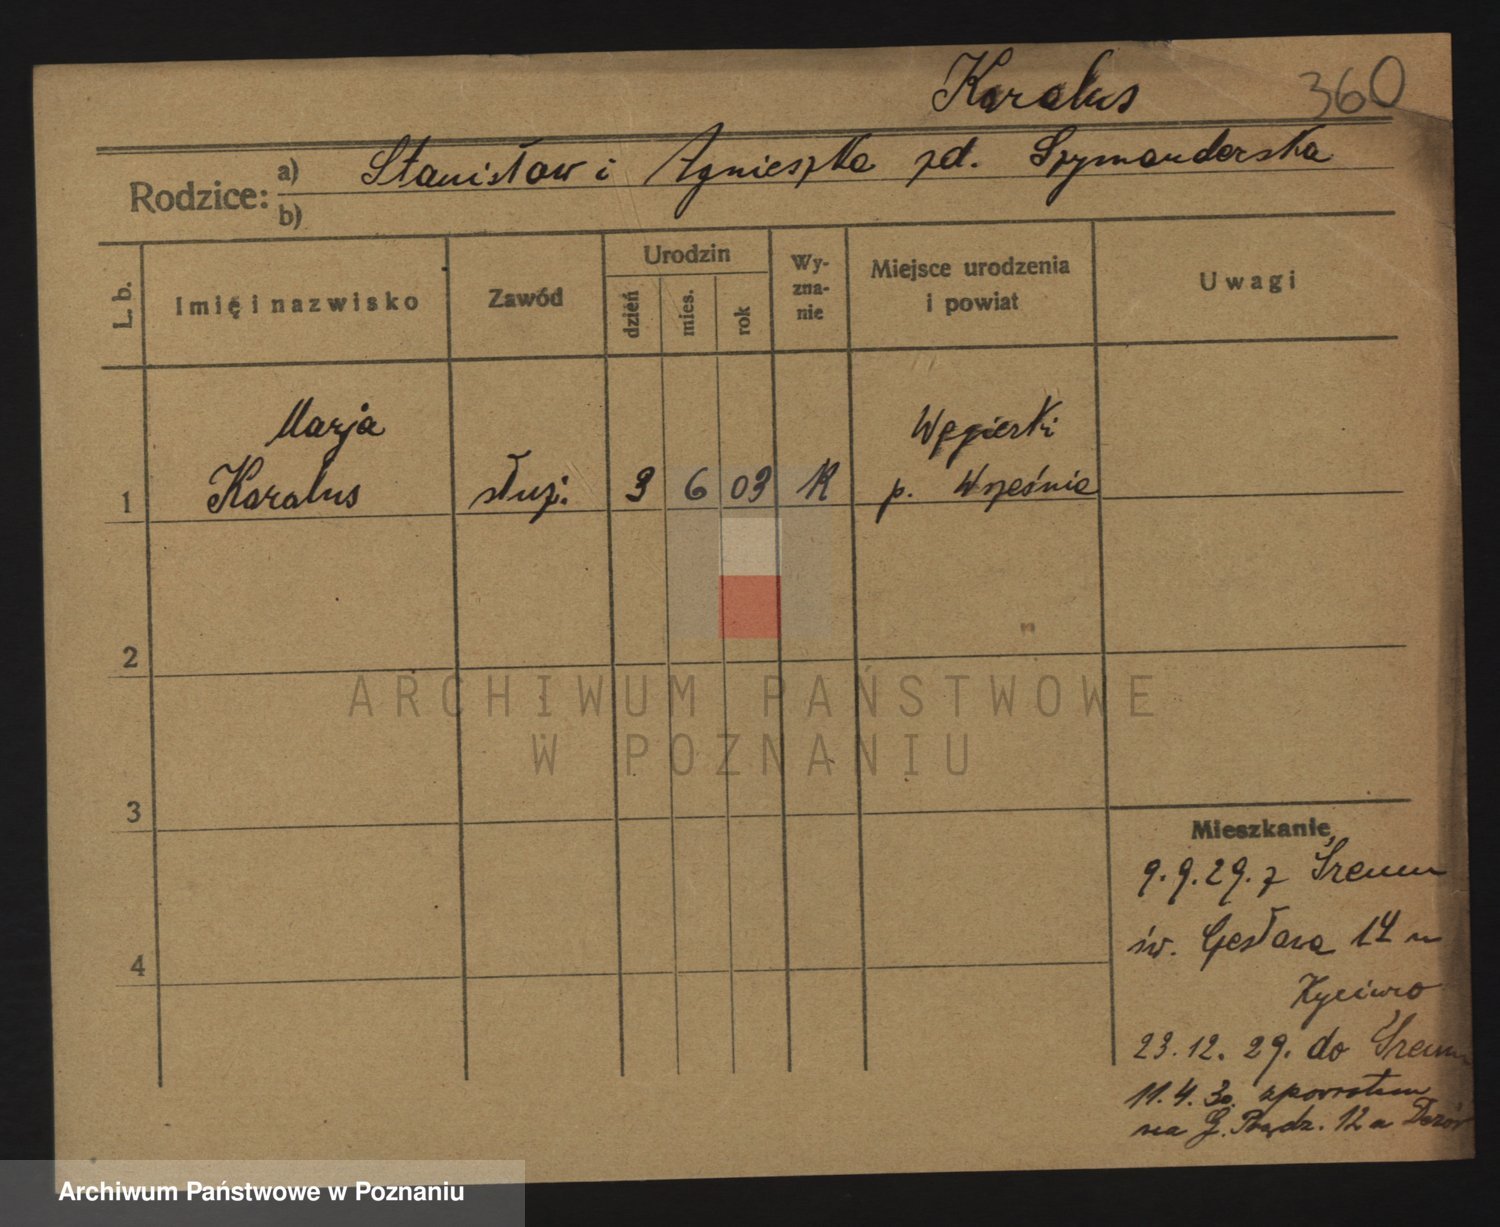 Karalus 360
Rodzice: a) Stanisław i Agnieszka zd. Szymanderska
b)
L. b. Imię i nazwisko Zawód Urodzin dzień mies. rok Wy-zna-nie Miejsce urodzenia i powiat Uwagi
Marja Węgierki
1 Karalus służ. 3 6 03 K p. Września
2
ARCHIWUM PAŃSTWOWE
W POZNANIU
3
Mieszkanie
9.9.29. z Śremu
4
św. Czesława 14 u
23.12.29. do Śremu
11.4.30. zpowrotem
na G. 12 u
Archiwum Państwowe w Poznaniu